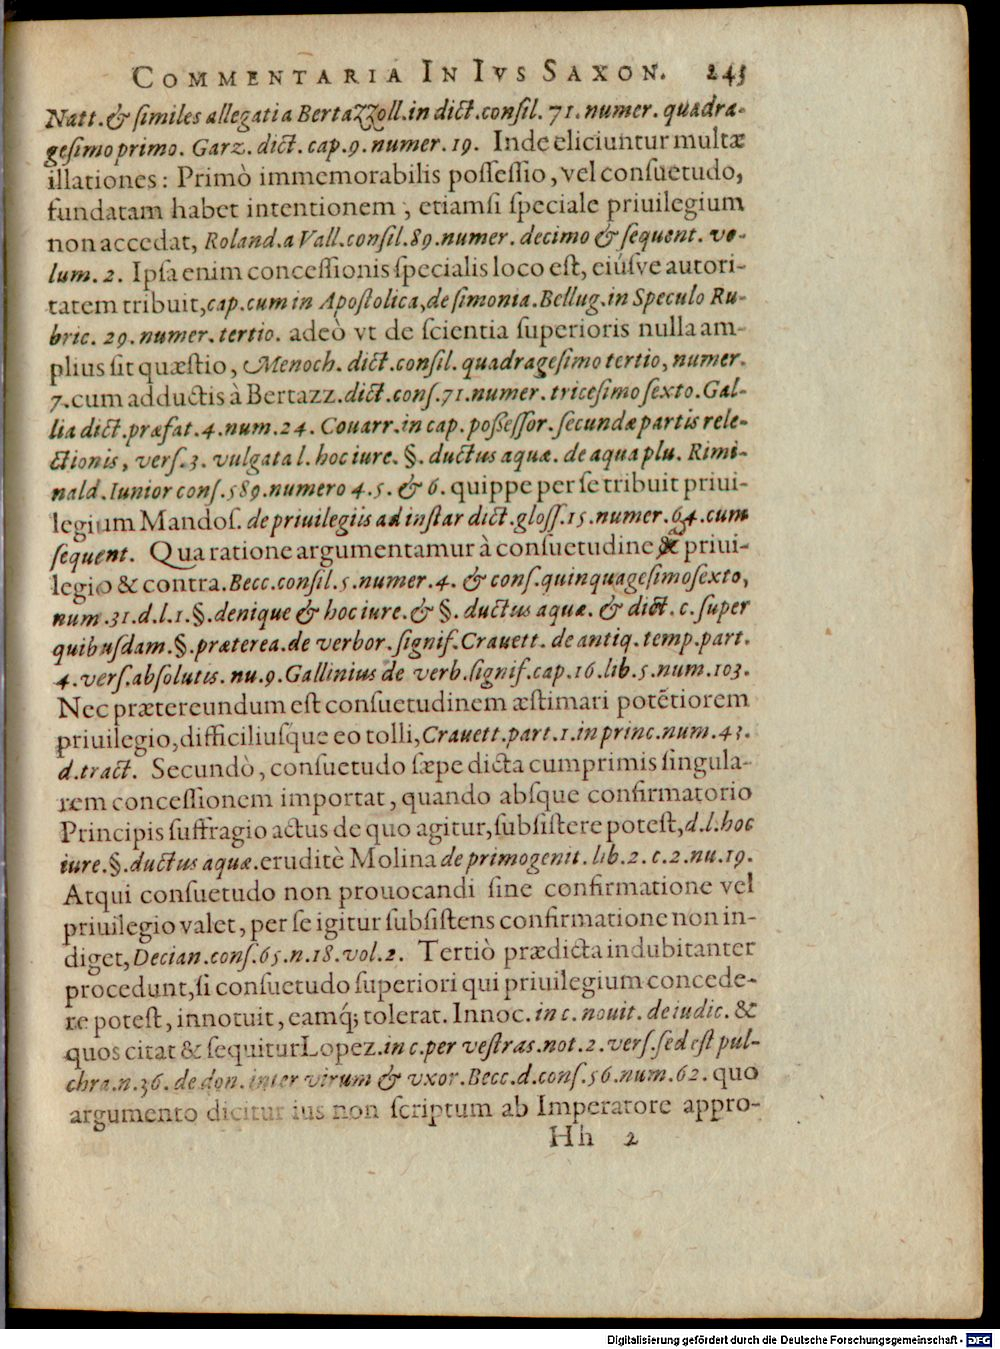 COMMENTARIA IN IVS SAXON. 243
Natt. & ſimiles allegati a BertaZZoll. in dict. conſil. 71. numer. quadra-
geſimo primo. Garz. dict. cap. 9. numer. 19. Inde eliciuntur multæ
illationes: Primò immemorabilis poſſeſſio, vel conſuetudo,
fundatam habet intentionem, etiamſi ſpeciale priuilegium
non accedat, Roland. a Vall. conſil. 89. numer. decimo & ſequent. vo-
lum. 2. Ipſa enim conceſſionis ſpecialis loco eſt, eiúſve autori-
tatem tribuit, cap. cum in Apoſtolica, de ſimonia. Bellug. in Speculo Ru-
bric. 29. numer. tertio. adeò vt de ſcientia ſuperioris nulla am-
plius ſit quæſtio, Menoch. dict. conſil. quadrageſimo tertio, numer.
7. cum adductis à Bertazz. dict. conſ. 71. numer. triceſimo ſexto. Gal-
lia dict. præfat. 4. num. 24. Couarr. in cap. poſſeſſor. ſecundæ partis rele-
ctionis, verſ. 3. vulgata l. hoc iure. §. ductus aquæ. de aqua plu. Rimi-
nald. Iunior conſ. 589. numero 4. 5. & 6. quippe per ſe tribuit priui-
legium Mandoſ. de priuilegiis ad inſtar dict. gloſſ. 15. numer. 64. cum
ſequent. Qua ratione argumentamur à conſuetudine & priui-
legio & contra. Becc. conſil. 5. numer. 4. & conſ. quinquageſimo ſexto,
num. 31. d. l. 1. §. denique & hoc iure. & §. ductus aquæ. & dict. c. ſuper
quibuſdam. §. præterea. de verbor. ſignif. Crauett. de antiq. temp. part.
4. verſ. abſolutis. nu. 9. Gallinius de verb. ſignif. cap. 16. lib. 5. num. 103.
Nec prætereundum eſt conſuetudinem æſtimari potẽtiorem
priuilegio, difficiliuſque eo tolli, Crauett. part. 1. in princ. num. 43.
d. tract. Secundò, conſuetudo ſæpe dicta cumprimis ſingula-
rem conceſſionem importat, quando abſque confirmatorio
Principis ſuffragio actus de quo agitur, ſubſiſtere poteſt, d. l. hoc
iure. §. ductus aquæ. eruditè Molina de primogenit. lib. 2. c. 2. nu. 19.
Atqui conſuetudo non prouocandi ſine confirmatione vel
priuilegio valet, per ſe igitur ſubſiſtens confirmatione non in-
diget, Decian. conſ. 65. n. 18. vol. 2. Tertiò prædicta indubitanter
procedunt, ſi conſuetudo ſuperiori qui priuilegium concede-
re poteſt, innotuit, eamq́; tolerat. Innoc. in c. nouit. de iudic. &
quos citat & ſequitur Lopez. in c. per veſtras. not. 2. verſ. ſed eſt pul-
chra. n. 36. de don. inter virum & vxor. Becc. d. conſ. 56. num. 62. quo
argumento dicitur ius non ſcriptum ab Imperatore appro-
Hh 2
Digitalisierung gefördert durch die Deutsche Forschungsgemeinschaft - DFG